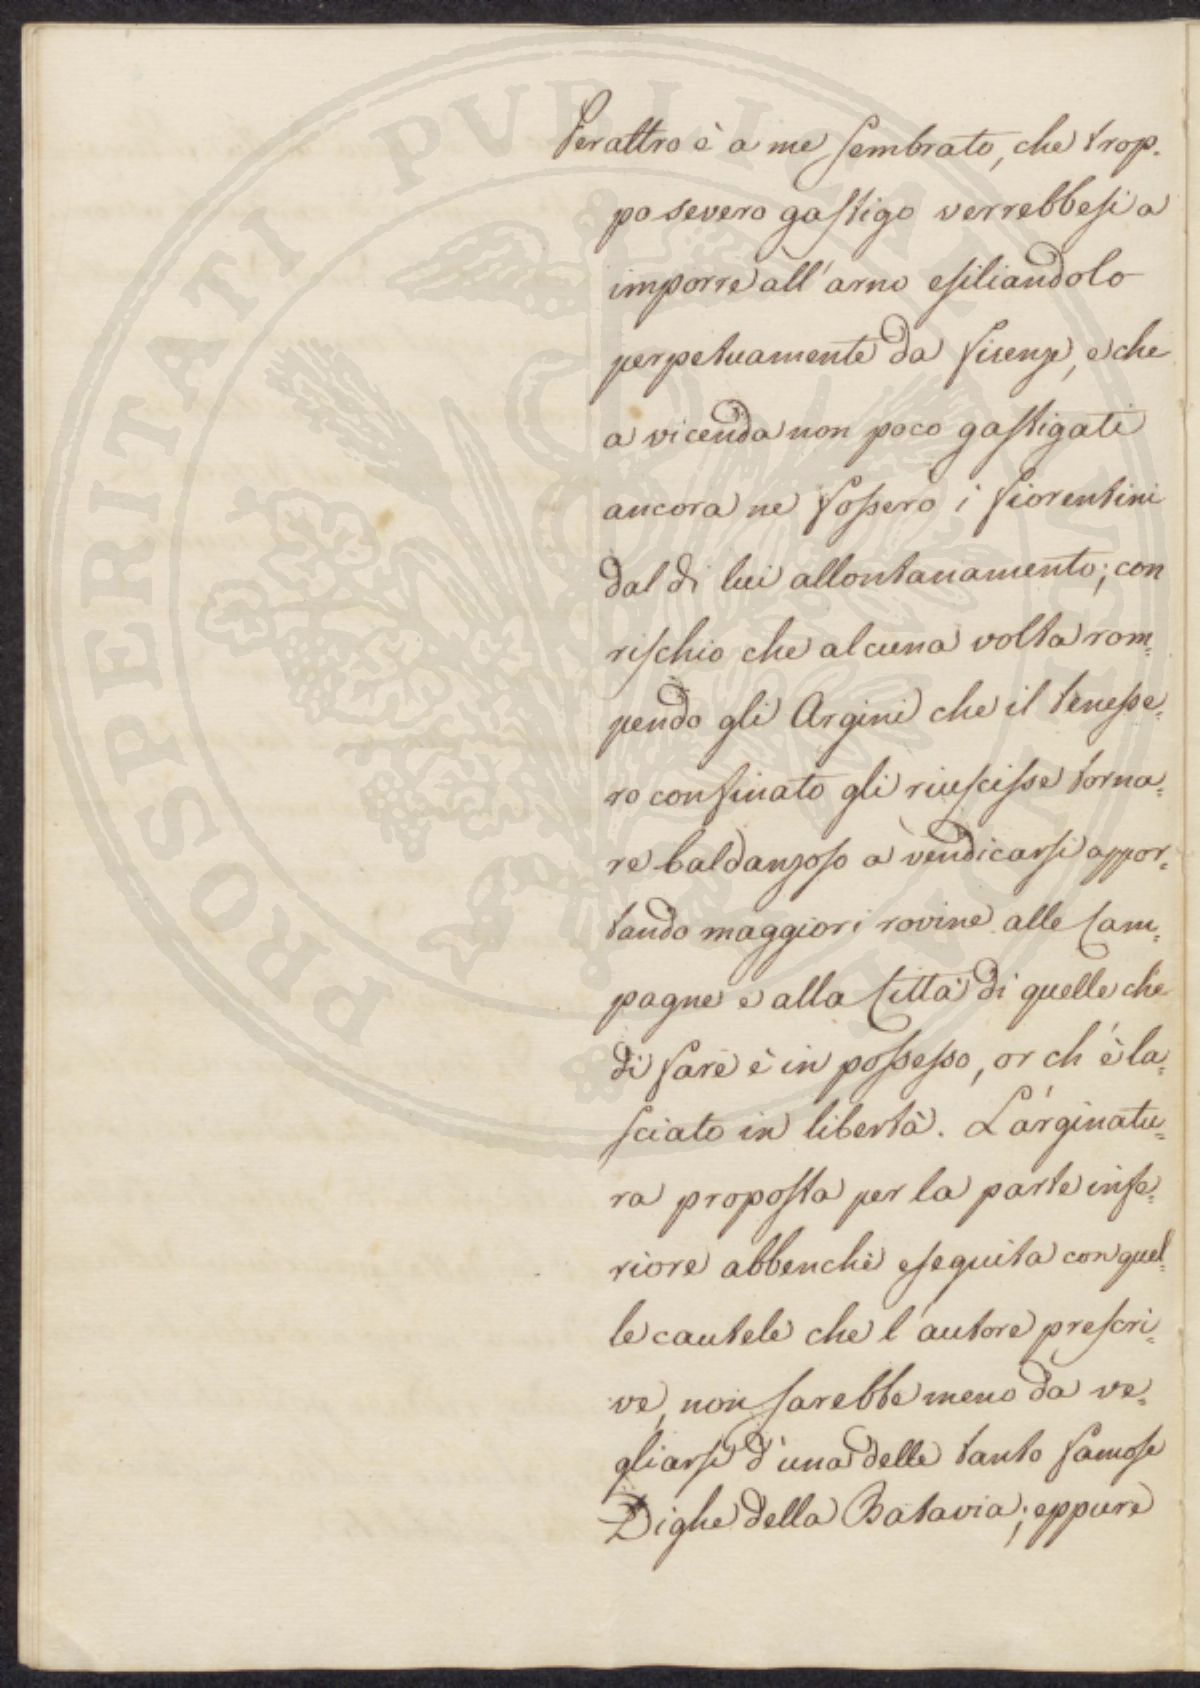 Peraltro è a me sembrato, che trop-
po severo gastigo verrebbesi a
imporre all'arno esiliandolo
perpetuamente da firenze, e che
a vicenda non poco gastigati
ancora ne fossero i fiorentini
dal di lui allontanamento; con
rischio che alcuna volta rom=
pendo gli Argini che il tenesse=
ro confinato gli riuscisse torna=
re baldanzoso a vendicarsi appor=
tando maggiori rovine alle Cam=
pagne e alla Città di quelle che
di fare è in possesso, or ch'è la=
sciato in libertà. L'arginatu=
ra proposta per la parte infe=
riore abbenchè eseguita con quel=
le cautele che l'autore prescri=
ve, non sarebbe meno da ve=
gliarsi d'una delle tanto famose
Dighe della Batavia; eppure
PROSPERITATI PVBLICAE